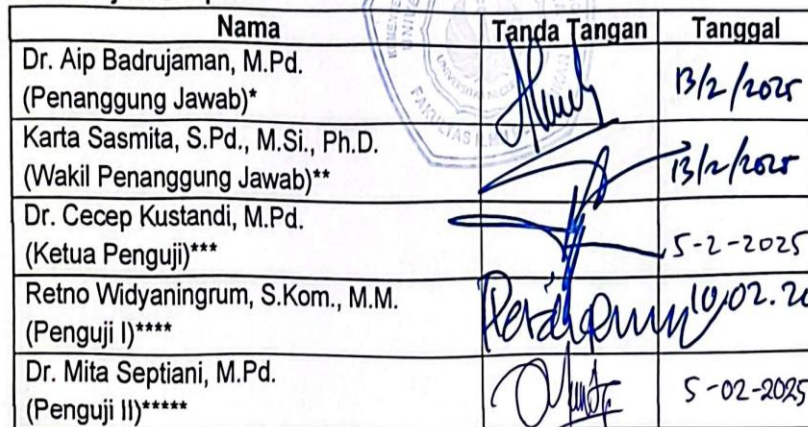 Nama Tanda Tangan Tanggal
Dr. Aip Badrujaman, M.Pd.
(Penanggung Jawab)* 13/2/2025
Karta Sasmita, S.Pd., M.Si., Ph.D.
(Wakil Penanggung Jawab)** 13/2/2025
Dr. Cecep Kustandi, M.Pd.
(Ketua Penguji)*** 5-2-2025
Retno Widyaningrum, S.Kom., M.M. 10.02.20
(Penguji I)****
Dr. Mita Septiani, M.Pd.
(Penguji II)***** 5-02-2025